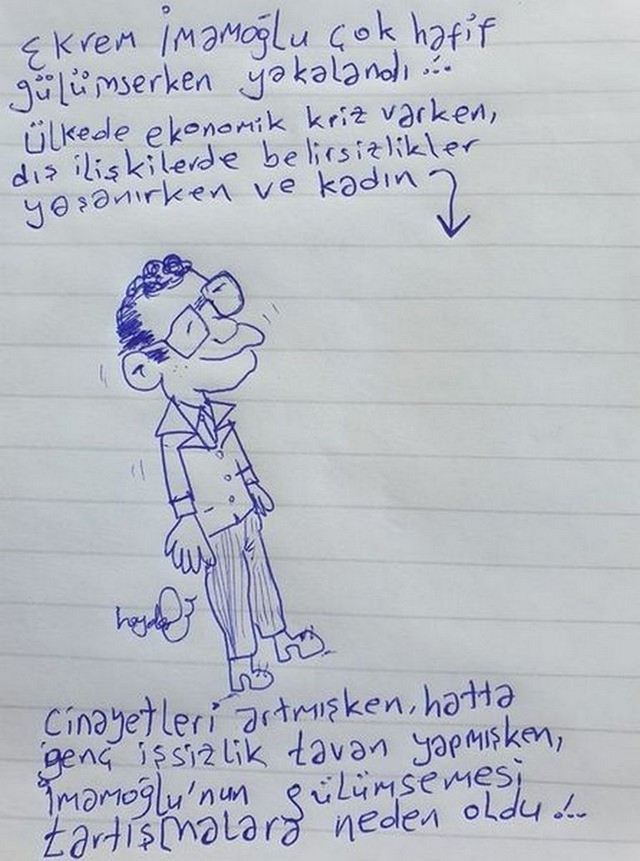 Ekrem İmamoğlu çok hafif
gülümserken yakalandı...
ülkede ekonomik kriz varken,
dış ilişkilerde belirsizlikler
yaşanırken ve kadın
cinayetleri artmışken, hatta
genç işsizlik tavan yapmışken,
İmamoğlu'nun gülümsemesi
tartışmalara neden oldu...